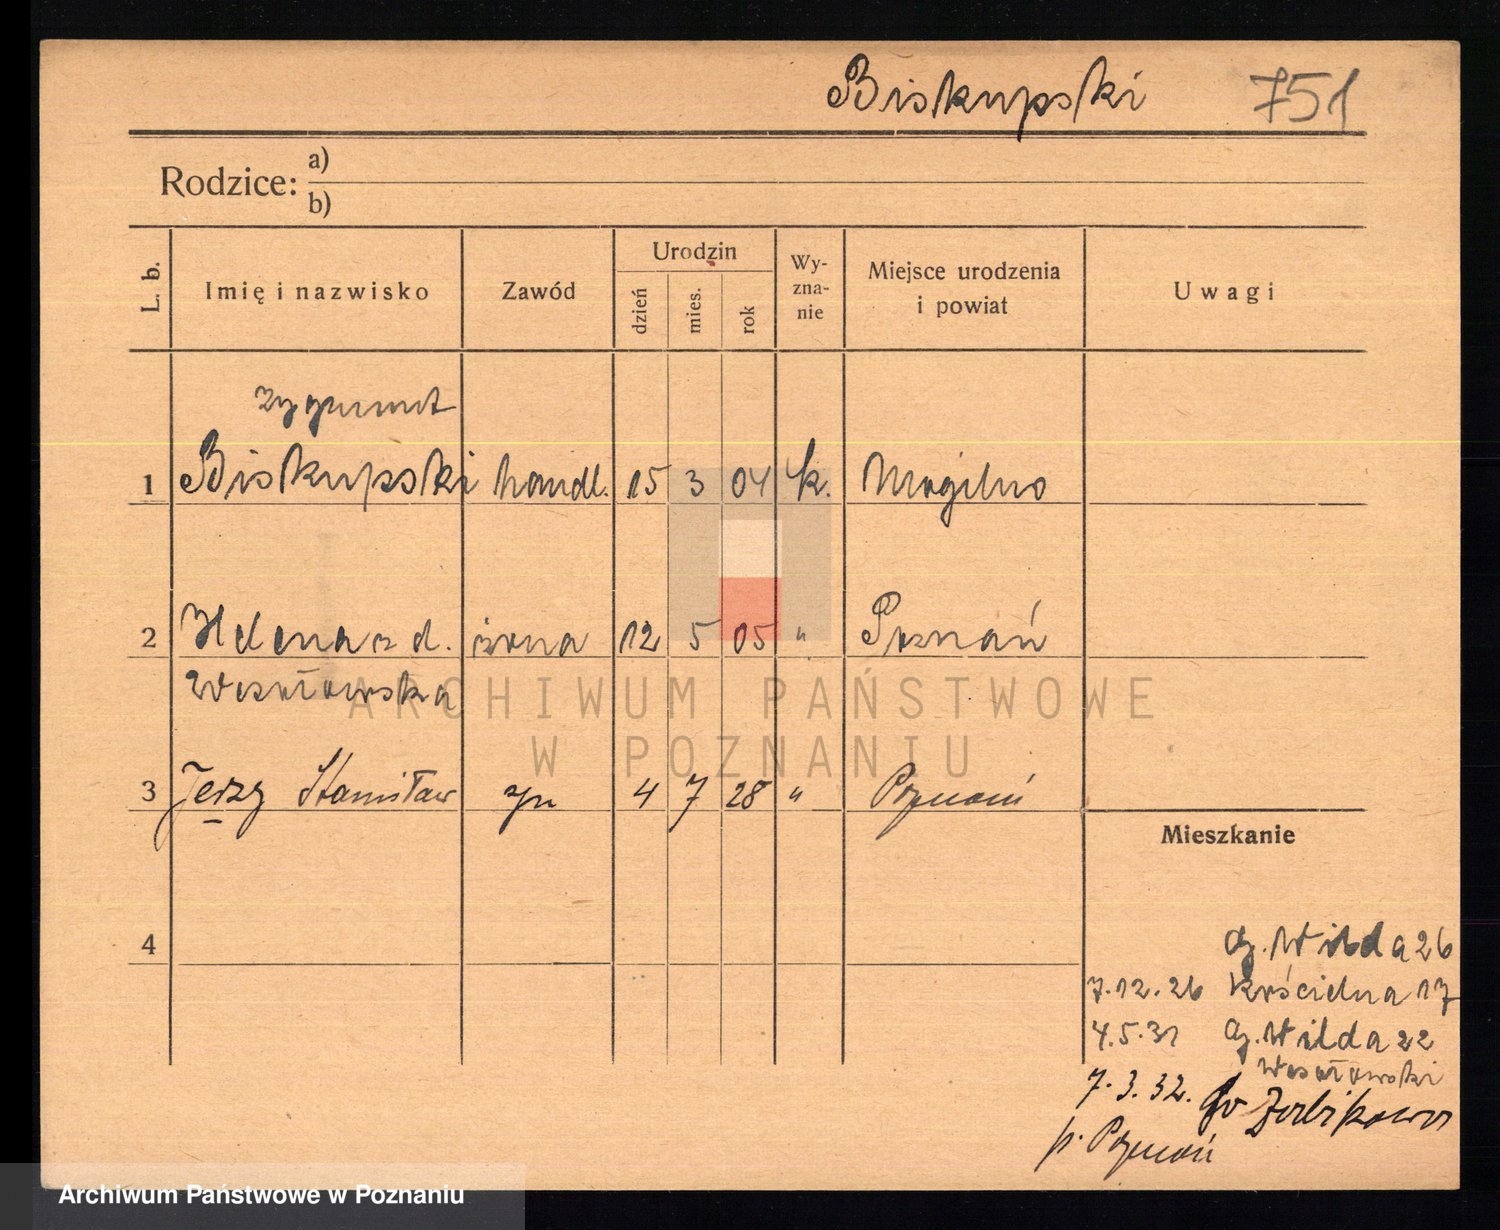 Biskupski 751
Rodzice: a)
b)
L. b. Imię i nazwisko Zawód Urodzin dzień mies. rok Wy-zna-nie Miejsce urodzenia i powiat Uwagi
Zygmunt
1 Biskupski handl. 15 3 04 k. Mogilno
2 Helena z d. żona 12 5 05 " Poznań
Wesołowska
ARCHIWUM PAŃSTWOWE
W POZNANIU
3 Jerzy Stanisław syn 4 7 28 " Poznań
Mieszkanie
4
G. Wilda 26
7.12.26 Kościelna 17
4.5.31 G. Wilda 22
Wesołowski
7.3.32. do Żabikowo
p. Poznań
Archiwum Państwowe w Poznaniu